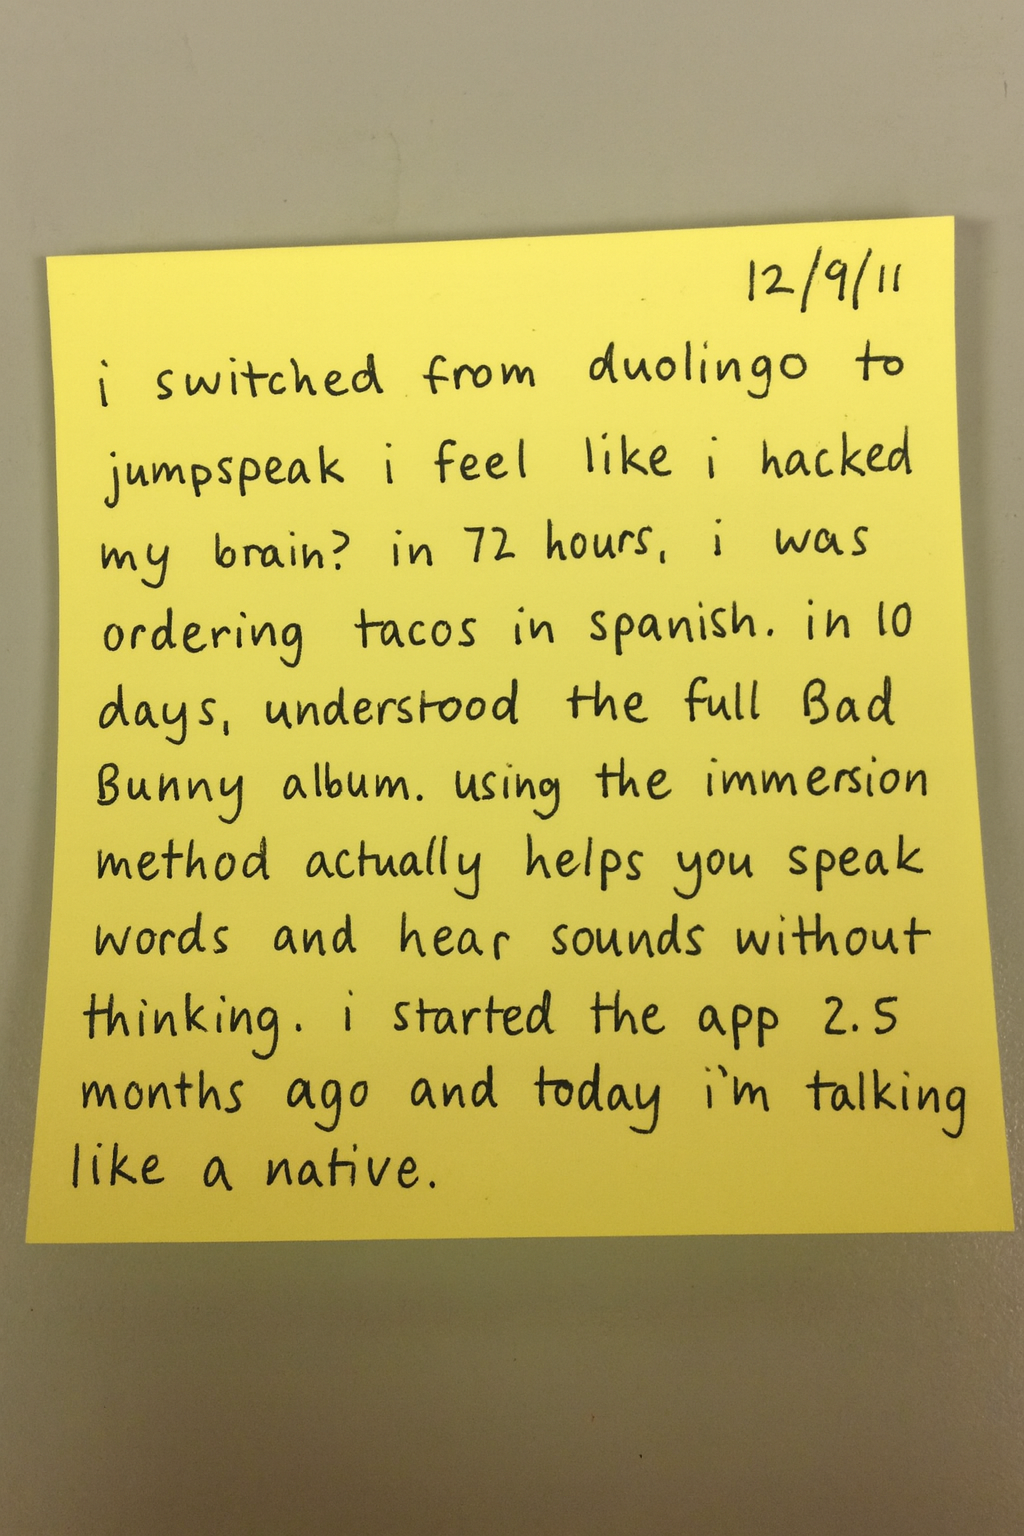 12/9/11
i switched from duolingo to
jumpspeak i feel like i hacked
my brain? in 72 hours, i was
ordering tacos in spanish. in 10
days, understood the full Bad
Bunny album. using the immersion
method actually helps you speak
words and hear sounds without
thinking. i started the app 2.5
months ago and today i'm talking
like a native.